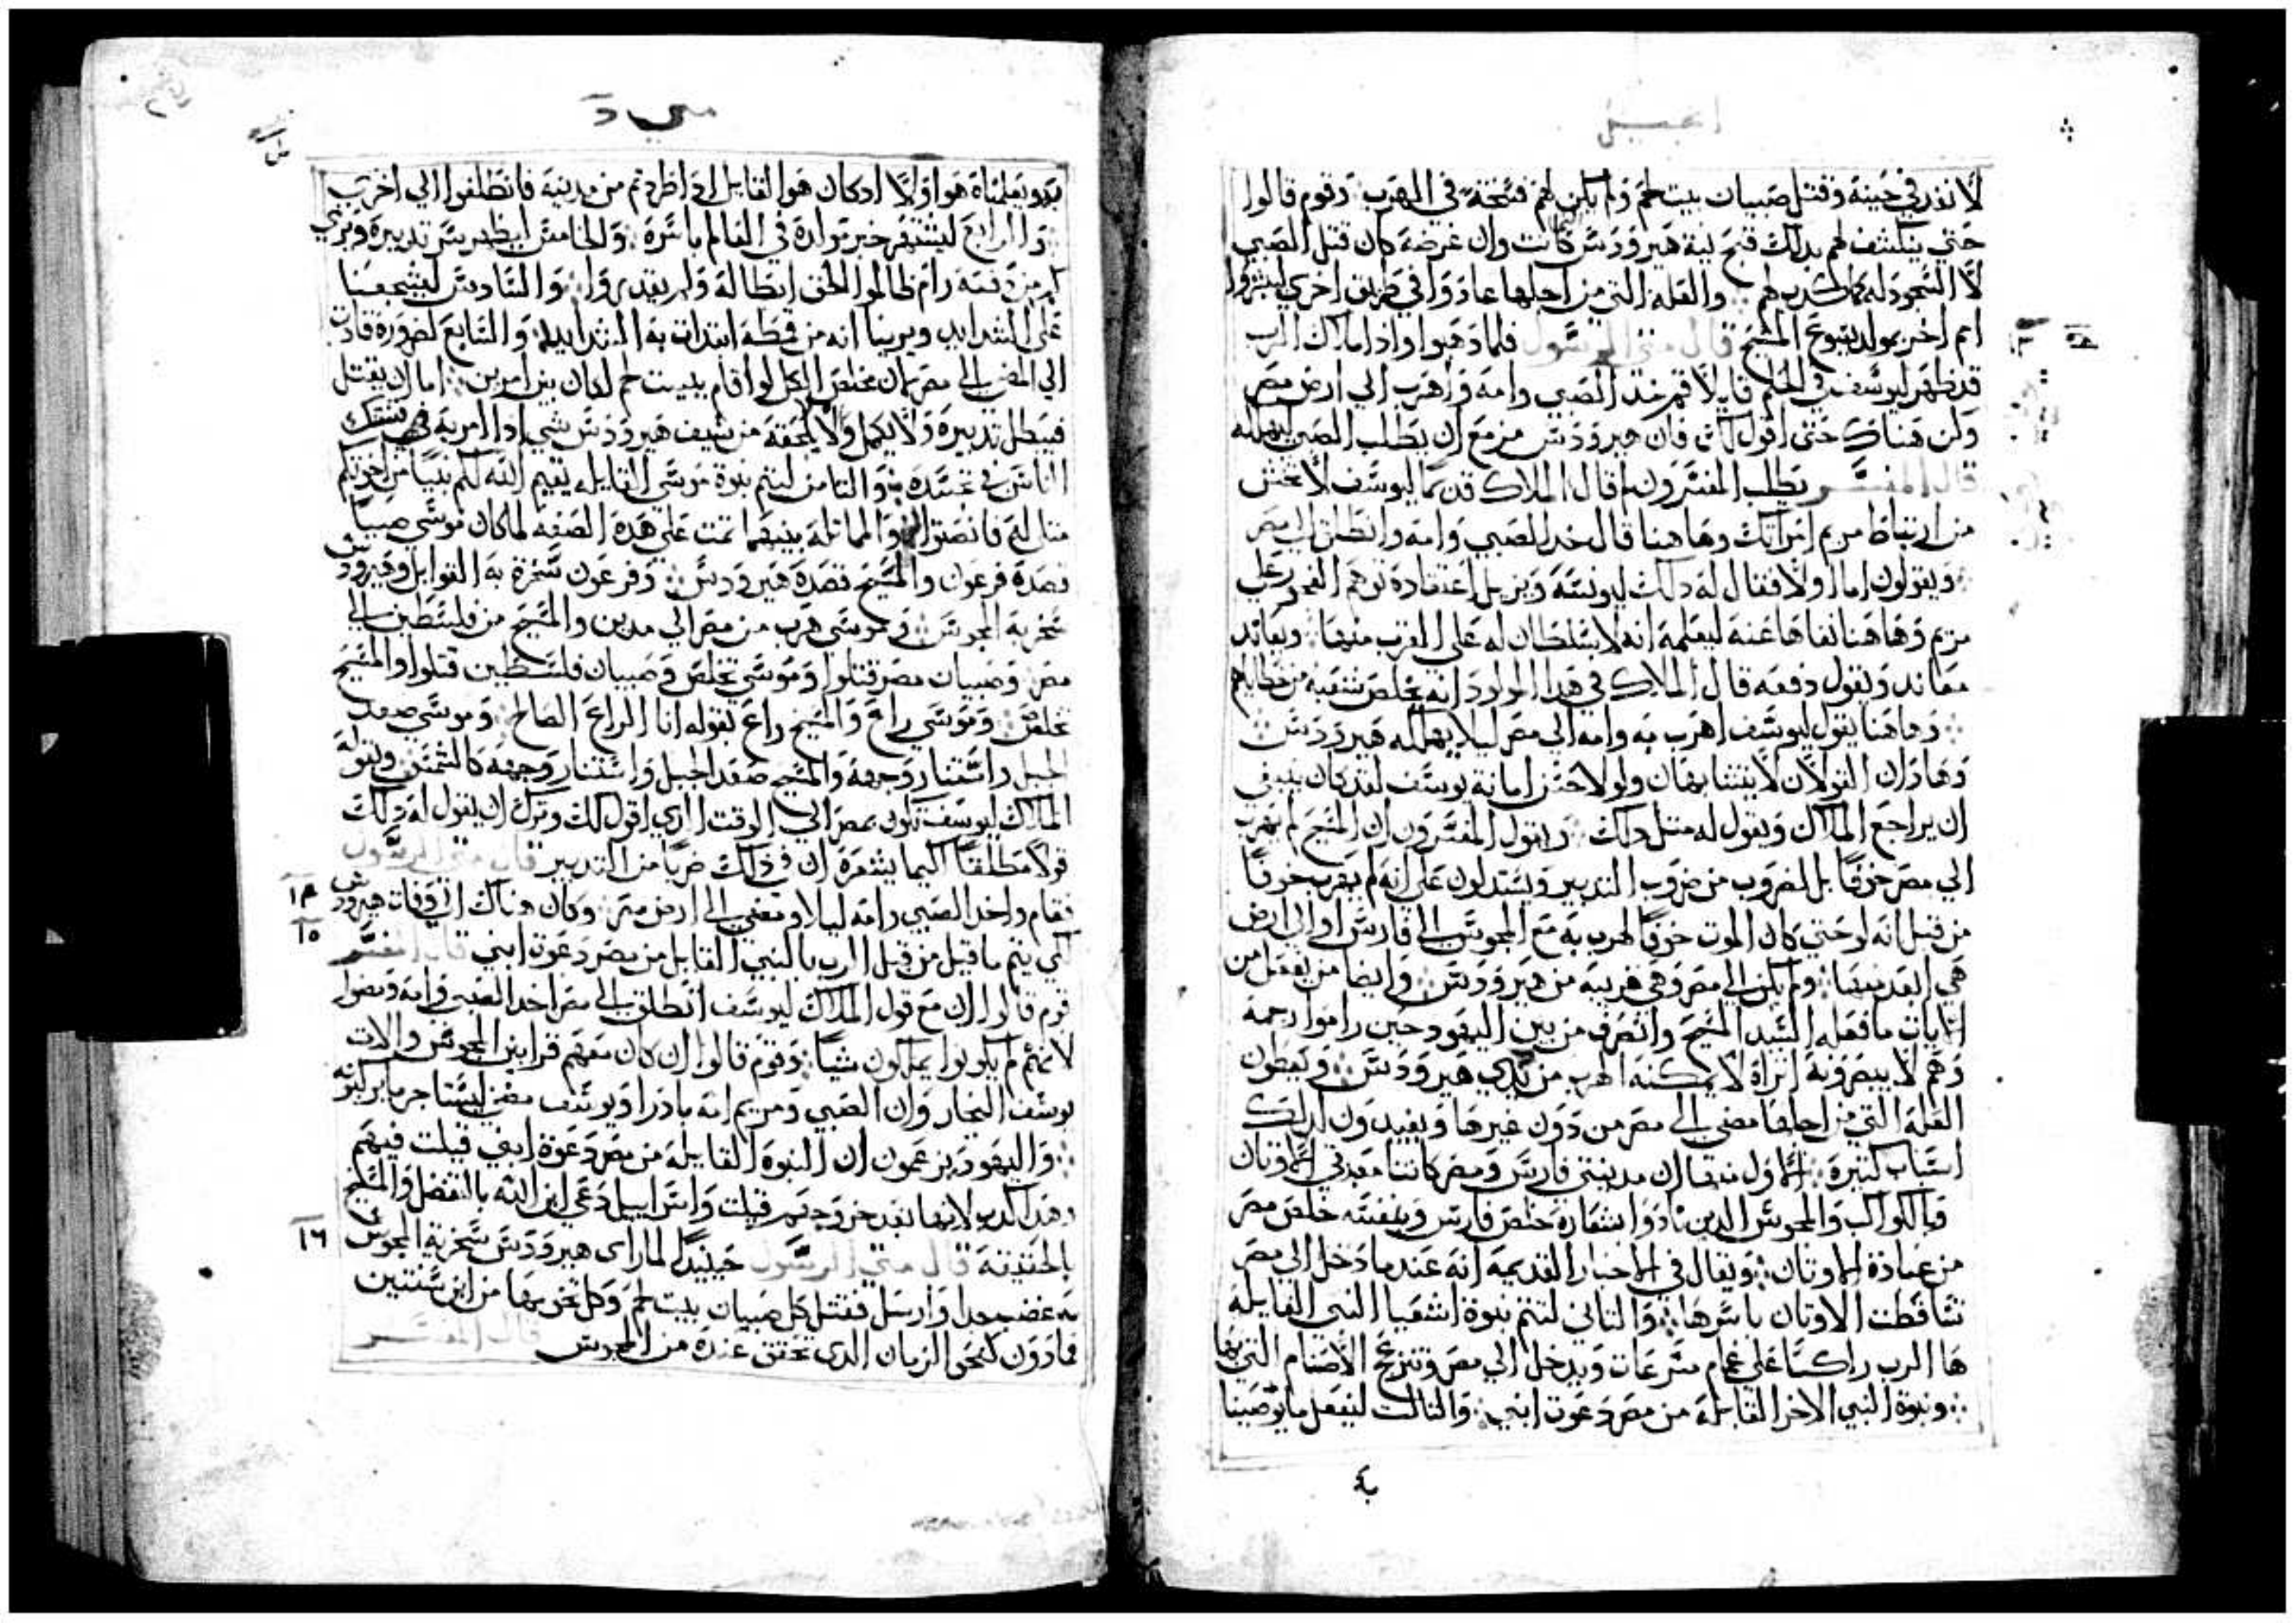 انجيل
لانذر في حينه وقتل صبيان بيت لحم ولم يكن لهم فسخة في الهرب وقوم قالوا
حتى ينكشف لهم بدلك قبح نية هيرودس كانت وان غرضه كان قتل الصبي
لا السجود له كما كدب لهم والعله التي من اجلها عادوا في طريق اخري ليبشروا
امم اخر بمولد يسوع المسيح قال متى الرسول فلما دهبوا وادا ملاك الرب
قد ظهر ليوسف في الحلم قايلا قم خد الصبي وامه واهرب الي ارض مصر
وكن هناك حتى اقول لك فان هيرودس مزمع ان يطلب الصبي ليهلكه
قال المفسر يطلب المفسرون لم قال الملاك قدما ليوسف لا تخش
من ارتباط مريم امراتك وهاهنا قال خد الصبي وامه وانطلق الي مصر
ويقولون اما اولا فقال له دلك ليونسه ويزيل اعتقاده توهم الفجور علي
مريم وهاهنا نفاها عنه ليعلمه انه لا سلطان له علي القرب منها ويعاند
معاند ويقول دفعه قال الملاك في هدا المولود انه يخلص شعبه من خطاياهم
وهاهنا يقول ليوسف اهرب به وامه الي مصر ليلا يهلكه هيرودس
وهادان القولان لا يتشابهان ولولا حسن امانة يوسف لقد كان ينبغي
ان يراجع الملاك ويقول له متل دلك ويقول المفسرون ان المسيح لم يهرب
الي مصر خوفا بل لضروب من ضروب التدبير ويستدلون علي انه لم يهرب خوفا
من قبل انه لو خشي كان الموت خوفا لهرب به مع المجوس الي فارس او الي ارض
هي ابعد منها ولم يكن الي مصر وهي قريبه من هيرودس وايضا من يفعل من
الايات ما فعله السيد المسيح وانصرف من بين اليهود حين راموا رجمه
وهم لا يبصرونه اتراه لا يمكنه الهرب من يدي هيرودس ويعطون
العله التي من اجلها مضي الي مصر من دون غيرها ويفيدون لدلك
اسباب كتيره الاول منها ان مدينتي فارس ومصر كانتا معدني الاوتان
فبالكواكب والمجوس الدين نادوا بشعاره خلص فارس وبنفسه خلص مصر
من عبادة الاوتان ويقال في الاخبار القديمه انه عندما دخل الي مصر
تساقطت الاوتان باسرها والتاني لتتم نبوة اشعيا النبي القايله
ها الرب راكبا علي غمام مسرعات ويدخل الي مصر وتنزعج الاصنام التي بها
ونبوة النبي الاخر القايله من مصر دعوت ابني والتالت ليفعل ما يوصينا
متى
به ويعلمناه هو اولا اد كان هو القايل ادا طردتم من مدينه فانطلقوا الي اخرى
والرابع ليشتهر خبر تواده في العالم باسره والخامس ليظهر سر تدبيره ويري
كم من دفعه رام ظالموا الحق ابطاله ولم يقدروا والسادس ليشجعنا
علي الشدايد ويرينا انه من قمطه ابتدات به الشدايد والسابع لضرورة قادت
الي المضي الي مصر لمن مخلص الكل لو اقام ببيت لحم لكان بين امرين اما ان يقتل
فيبطل تدبيره ولا يكمل ولا يلحقه من سيف هيرودس شي ادا امر به فيشك
الناس في تجسده والتامن لتتم نبوة موسي القايله يقيم الله لكم نبيا من اخوتكم
متلي له فانصتوا والماتله بينهما تمت علي هده الصفه لما كان موسي صبيا
قصده فرعون والمسيح قصده هيرودس وفرعون سخرة به القوابل وهيرودس
سخر به المجوس وموسي هرب من مصر الي مدين والمسيح من فلسطين الي
مصر وصبيان مصر قتلوا وموسي تخلص وصبيان فلسطين قتلوا والمسيح
تخلص وموسي راع والمسيح راع بقوله انا الراعي الصالح وموسي صعد
الجبل واستنار وجهه والمسيح صعد الجبل واستنار وجهه كالشمس وقول
الملاك ليوسف تكون بمصر الي الوقت الدي اقول لك وترك ان يقول له دلك
قولا مطلقا كيما يشعره ان في دلك ضربا من التدبير قال متى الرسول
فقام واخد الصبي وامه ليلا ومضي الي ارض مصر وكان هناك الي وفات هيرودس ١٤
لكي يتم ما قيل من قبل الرب بالنبي القايل من مصر دعوة ابني قال المفسر ١٥
قوم قالوا ان مع قول الملاك ليوسف انطلق الي مصر اخد الصبي وامه ومضوا
لانهم لم يكونوا يملكون شيا وقوم قالوا ان كان معهم قرابين المجوس والات
يوسف النجار وان الصبي ومريم امه بادرا ويوسف مضي ليستاجر ما يركبونه
واليهود يزعمون ان النبوة القايله من مصر دعوة ابني قيلت فيهم
وهدا كدب لانها بعد خروجهم قيلت واسراييل دعي ابن الله بالفضل والمسيح
بالحقيقه قال متى الرسول حينيد لما راى هيرودس سخرية المجوس ١٦
به غضب جدا وارسل فقتل كل صبيان بيت لحم وكل تخومها من ابن سنتين
فما دون كنحو الزمان الدي تحقق عنده من المجوس قال المفسر